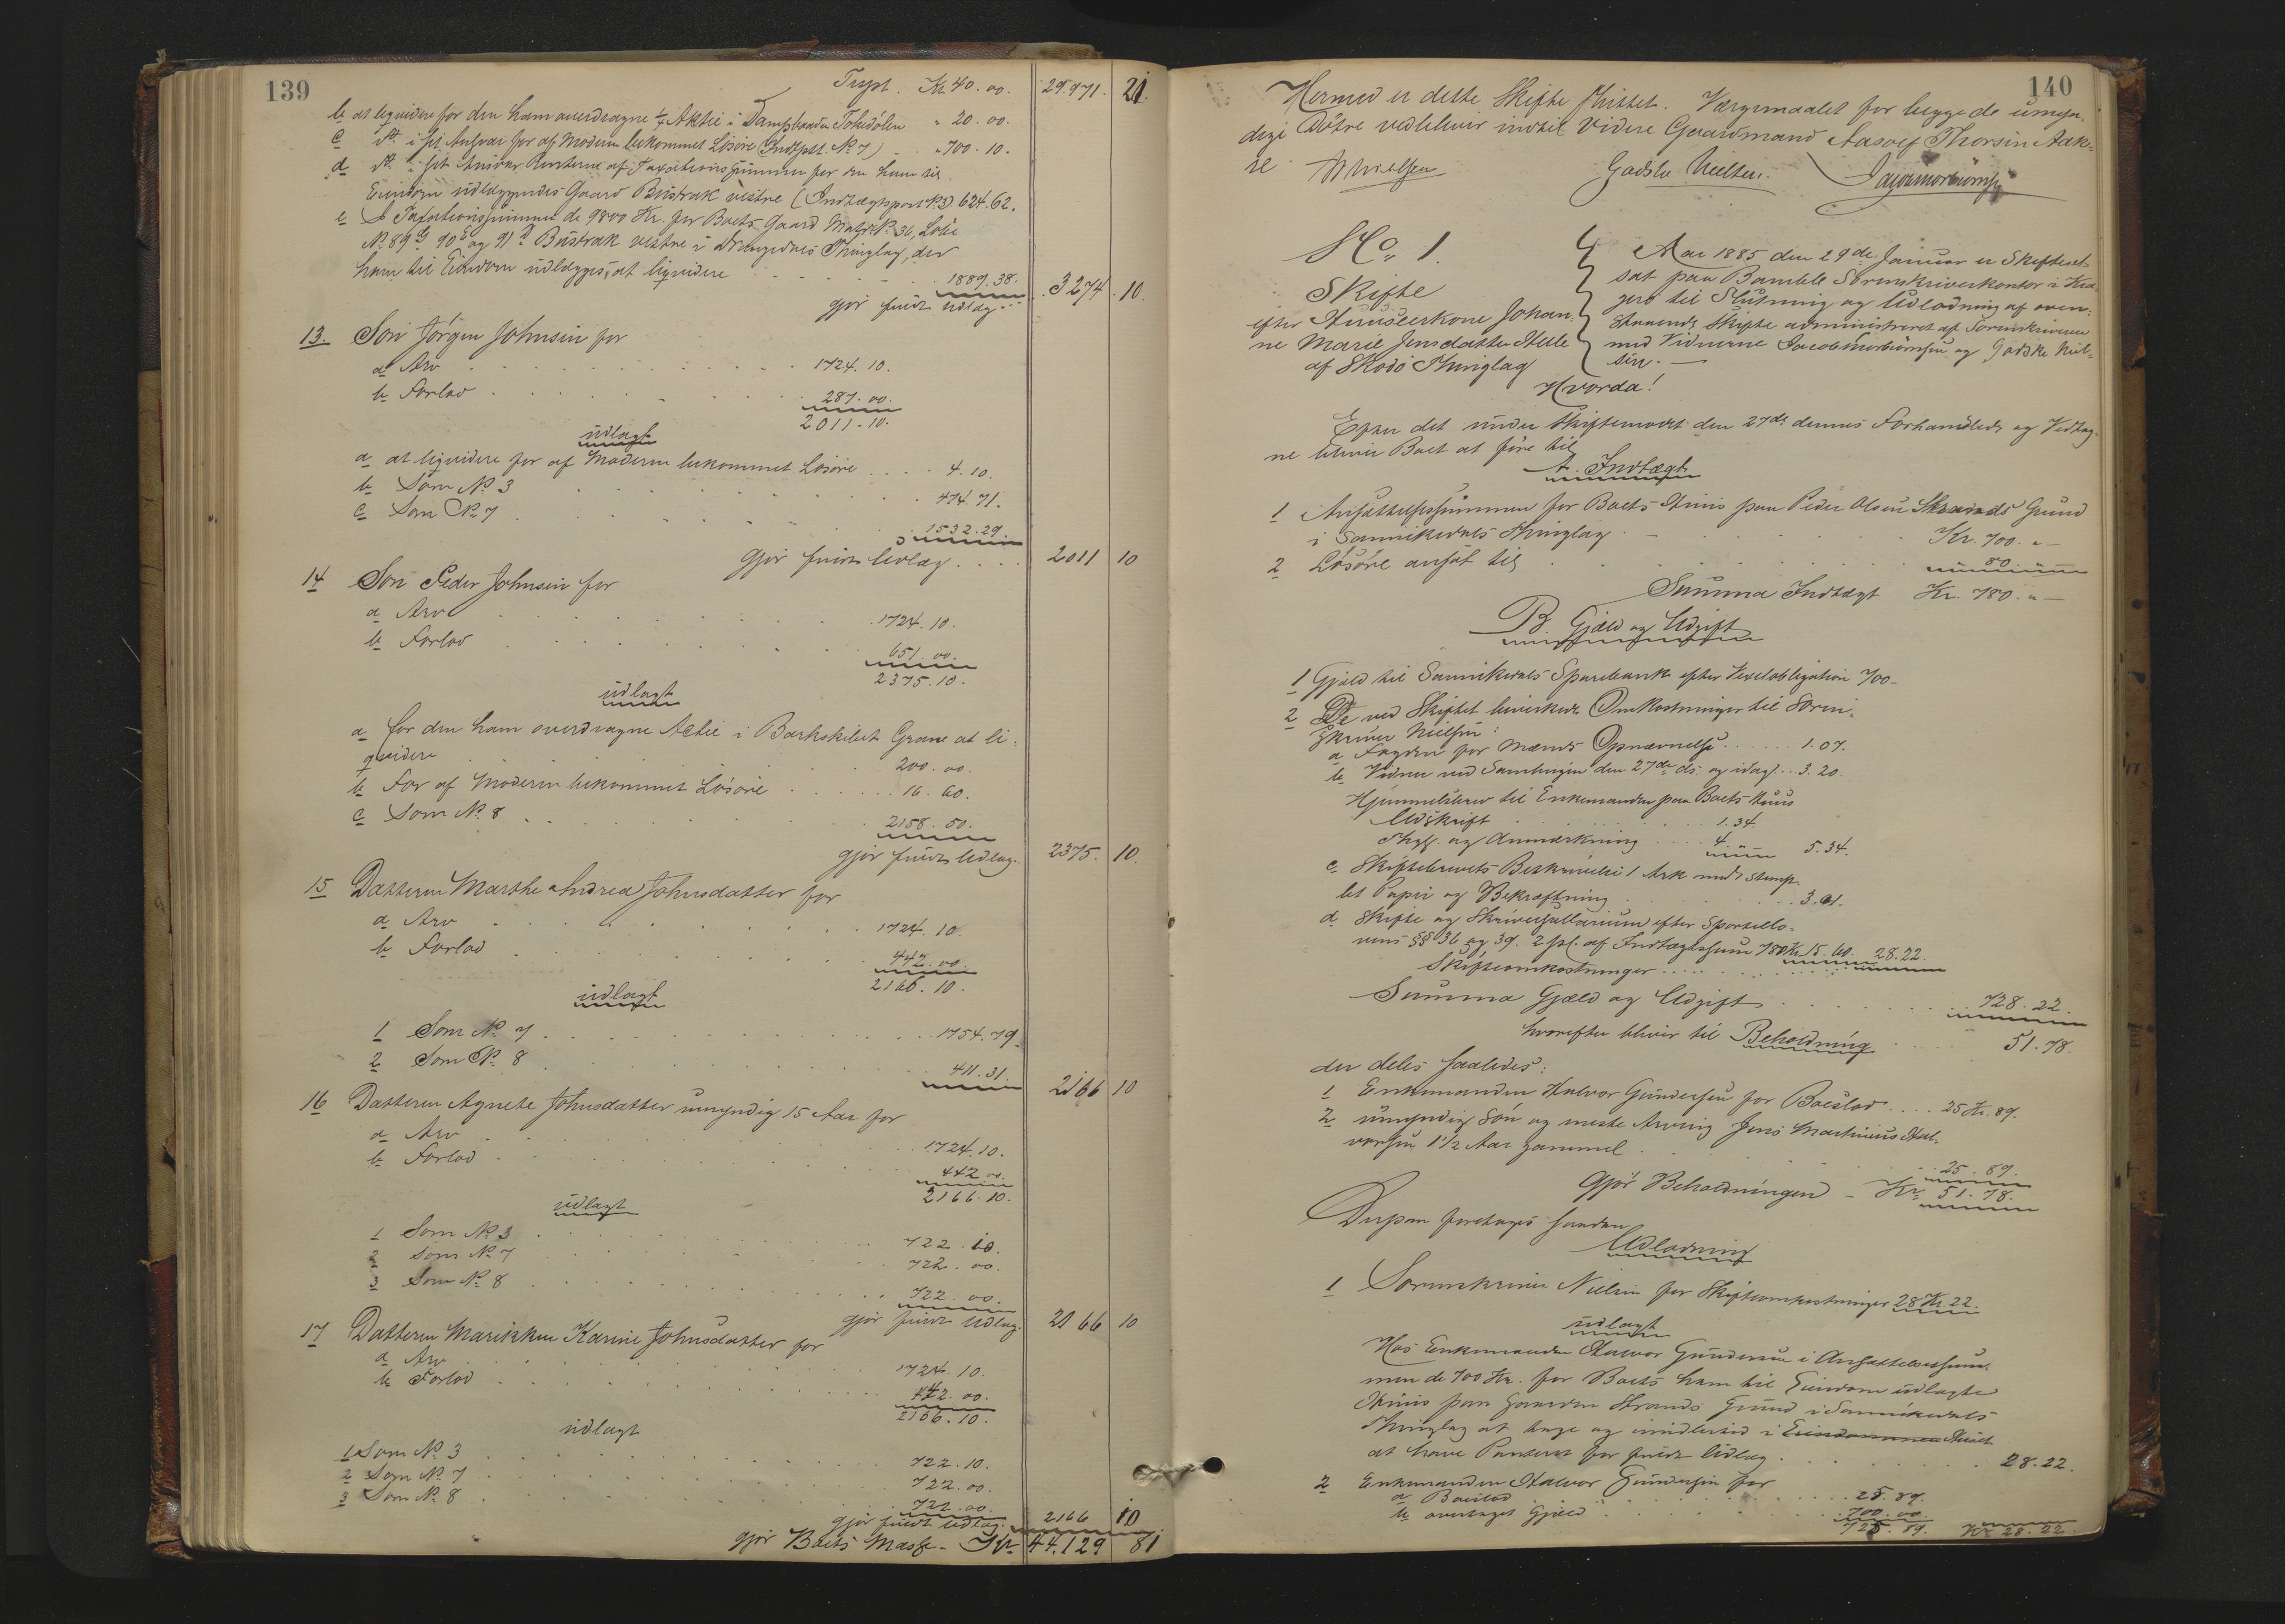 139
Trspt. Kr. 40. 00. 29.971. 21.
b at liqvidere for den ham overdragne 1/4 Aktie i Dampbaaden Tokedølen " 20. 00.
c dt. i sit Ansvar for af Moderen bekommet Løsøre (Indtpst. No 7) " 700. 10.
d dt. i sit Ansvar Renterne af Taxationssummen for den ham til
Eiendom udlæggendes Gaard Bustrak vestre (Indtægtspost No 3) 624. 62.
e I Taxationssummen de 9800 Kr. for Boets Gaard Matr. No 36, Løbe
No 89 90 og 91 Bustrak vestre i Drangedals Thinglag, der
ham til Eiendom udlægges, at liqvidere 1889. 38.
gjør fuldt Udlæg 3274. 10.
13. Søn Jørgen Johnsen for
a Arv 1724. 10.
b Forlod 287. 00.
2011. 10.
udlagt
a at liqvidere for af Moderen bekommet Løsøre 4. 10.
b Som No 3 474. 71.
c Som No 7 1532. 29.
gjør fuldt Udlæg 2011 10
14 Søn Peder Johnsen for
a Arv 1724. 10.
b Forlod 651. 00.
2375. 10.
udlagt
a for den ham overdragne Actie i Barkskibet Grane at li-
qvidere 200. 00.
b For af Moderen bekommet Løsøre 16. 60.
c Som No 8 2158. 50.
gjør fuldt Udlæg. 2375. 10.
15 Datteren Marthe Andrea Johnsdatter for
a Arv 1724. 10.
b Forlod 442. 00.
2166. 10.
udlagt
1 Som No 7 1754. 79.
2 Som No 8 411. 31. 2166 10
16 Datteren Agnete Johnsdatter umyndig 15 Aar for
a Arv 1724. 10.
b Forlod 442 00.
2166. 10.
udlagt
1 Som No 3 722. 10.
2 Som No 7 722. 00.
3 Som No 8 722. 00.
gjør fuldt Udlæg. 2166 10
17 Datteren Marikken Karine Johnsdatter for
a Arv 1724. 10.
b Forlod 442. 00.
2166. 10.
udlagt
1 Som No 3 722. 10.
2 Som No 7 722. 00.
3 Som No 8 722. 00.
gjør fuldt Udlæg. 2166 10
gjør Boets Masse - Kr. 44.129 81
140
Hermed er dette Skifte sluttet. Værgemaalet for begge de umyn-
dige Døtre vedbliver indtil Videre Gaardmand Aasolf Thorsen Aak-
re. Nielsen Gadske Nielsen. Jacob Mørbiørnsen
No 1.
Skifte
efter Huuseierkone Johan-
ne Marie Jensdatter Helle
af Skaadø Thinglag
Aar 1885 den 29de Januar er Skifteret
sat paa Bamble Sorenskriverkontor i Kra-
gerø til Slutning og Udlodning af oven-
staaende Skifte administreret af Sorenskriveren
med Vidnerne Jacob Mørbiørnsen og Gadske Niel-
sen.
Hvorda!
Efter det under Skiftemødet den 27de dennes Forhandlede og Vedtag-
ne bliver Boet at føre til
A. Indtægt
1 Ansættelsessummen for Boets Huus paa Peder Olsens Strands Grund
i Sannikedals Thinglag Kr. 700. "
2 Løsøre ansat til 80. "
Summa Indtægt Kr. 780. "
B Gjæld og Udgift
1 Gjæld til Sannikedals Sparebank efter Vexelobligation 700-
2 De ved Skiftet bevirkede Omkostninger til Soren-
skriver Nielsen:
a Fogden for Mænds Opnævnelse 1. 07.
b Vidner ved Samlingen den 27de ds. og idag 3. 20.
Hjemmelsbrev til Enkemanden paa Boets Huus
Udskrift 1. 34.
Thgl. og Anmærkning 4. " 5. 34.
c Skiftebrevets Beskrivelse 1 Ark med Stemp-
let Papir og Bekræftning 3. 01.
d Skifte og Skriversallarium efter Sportello-
vens §§ 36 og 39. 2 pCt. af Indtægtssum 780 Kr. 15. 60. 28. 22.
Skifteomkostninger
Summa Gjæld og Udgift 728. 22.
hvorefter bliver til Beholdning 51. 78.
der deles saaledes:
1 Enkemanden Halvor Gundersen for Boeslod 25 Kr. 89.
2 umyndig Søn og eneste Arving Jens Marthinius Hal-
vorsen 1 1/2 Aar gammel 25. 89.
Gjør Beholdningen - Kr. 51. 78.
Derpaa foretages saadan
Udlodning
1 Sorenskriver Nielsen for Skifteomkostninger 28 Kr. 22.
udlagt
Hos Enkemanden Halvor Gundersen i Ansættelsessum-
men de 700 Kr. for Boets ham til Eiendom udlagte
Huus paa Gaarden Strands Grund i Sannikedals
Thinglag at tage og imidlertid i Eiendommen Huset
at have Panteret for fuldt Udlæg 28. 22.
2 Enkemanden Halvor Gundersen for
a Boeslod 25. 89.
b overtaget Gjæld 700. 00.
725. 89. Kr. 28. 22.